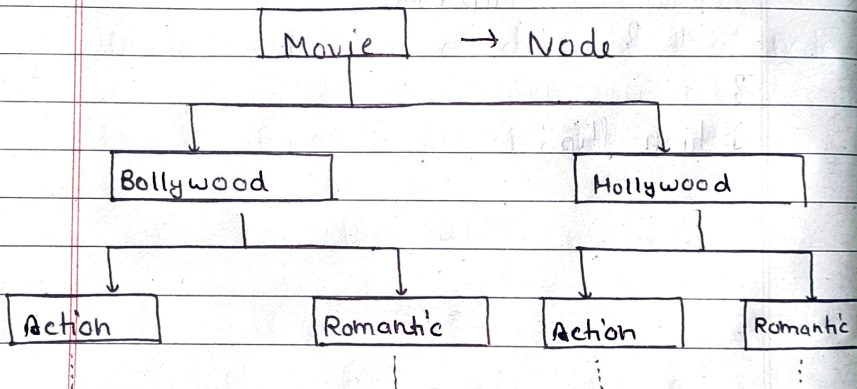 Movie → Node
Bollywood Hollywood
Action Romantic Action Romantic